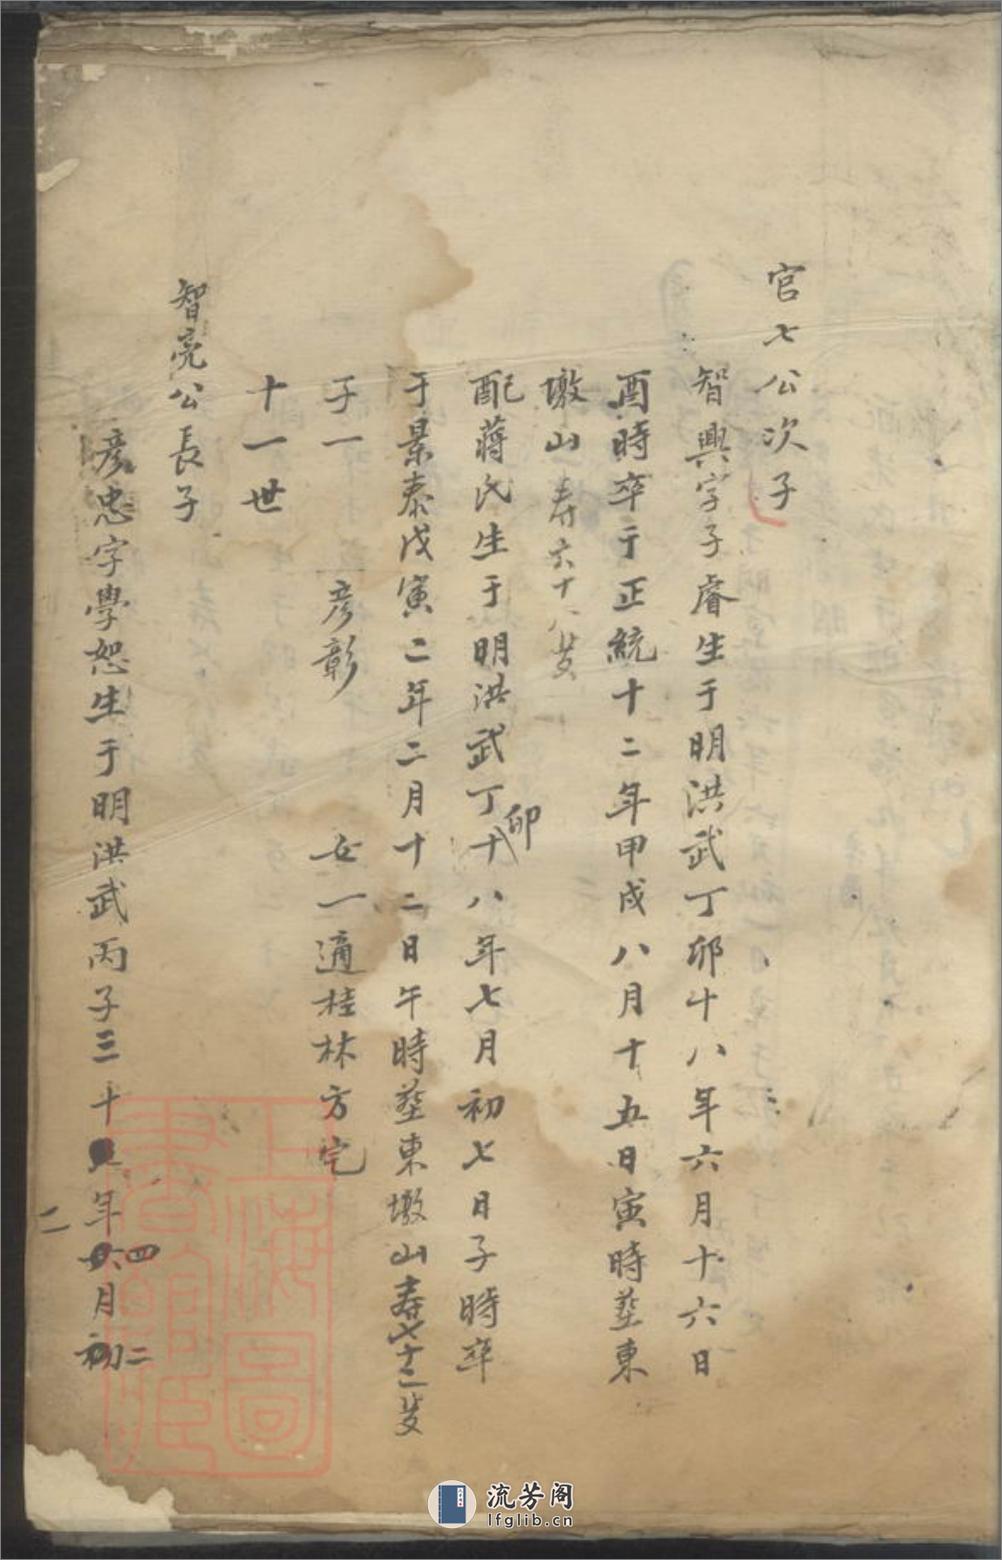 官七公次子
智興字子睿生于明洪武丁卯十八年六月十六日
酉時卒于正統十二年甲戌八月十五日寅時塟東
墩山壽六十八歲
配蔣氏生于明洪武丁卯十八年七月初七日子時卒
于景泰戊寅二年二月十二日午時塟東墩山壽七十二歲
子一 彦彰 女一適桂林方宅
十一世
智亮公長子
彦忠字學恕生于明洪武丙子三十年四月初二
二
上海圖書館藏
流芳阁
lfglib.cn